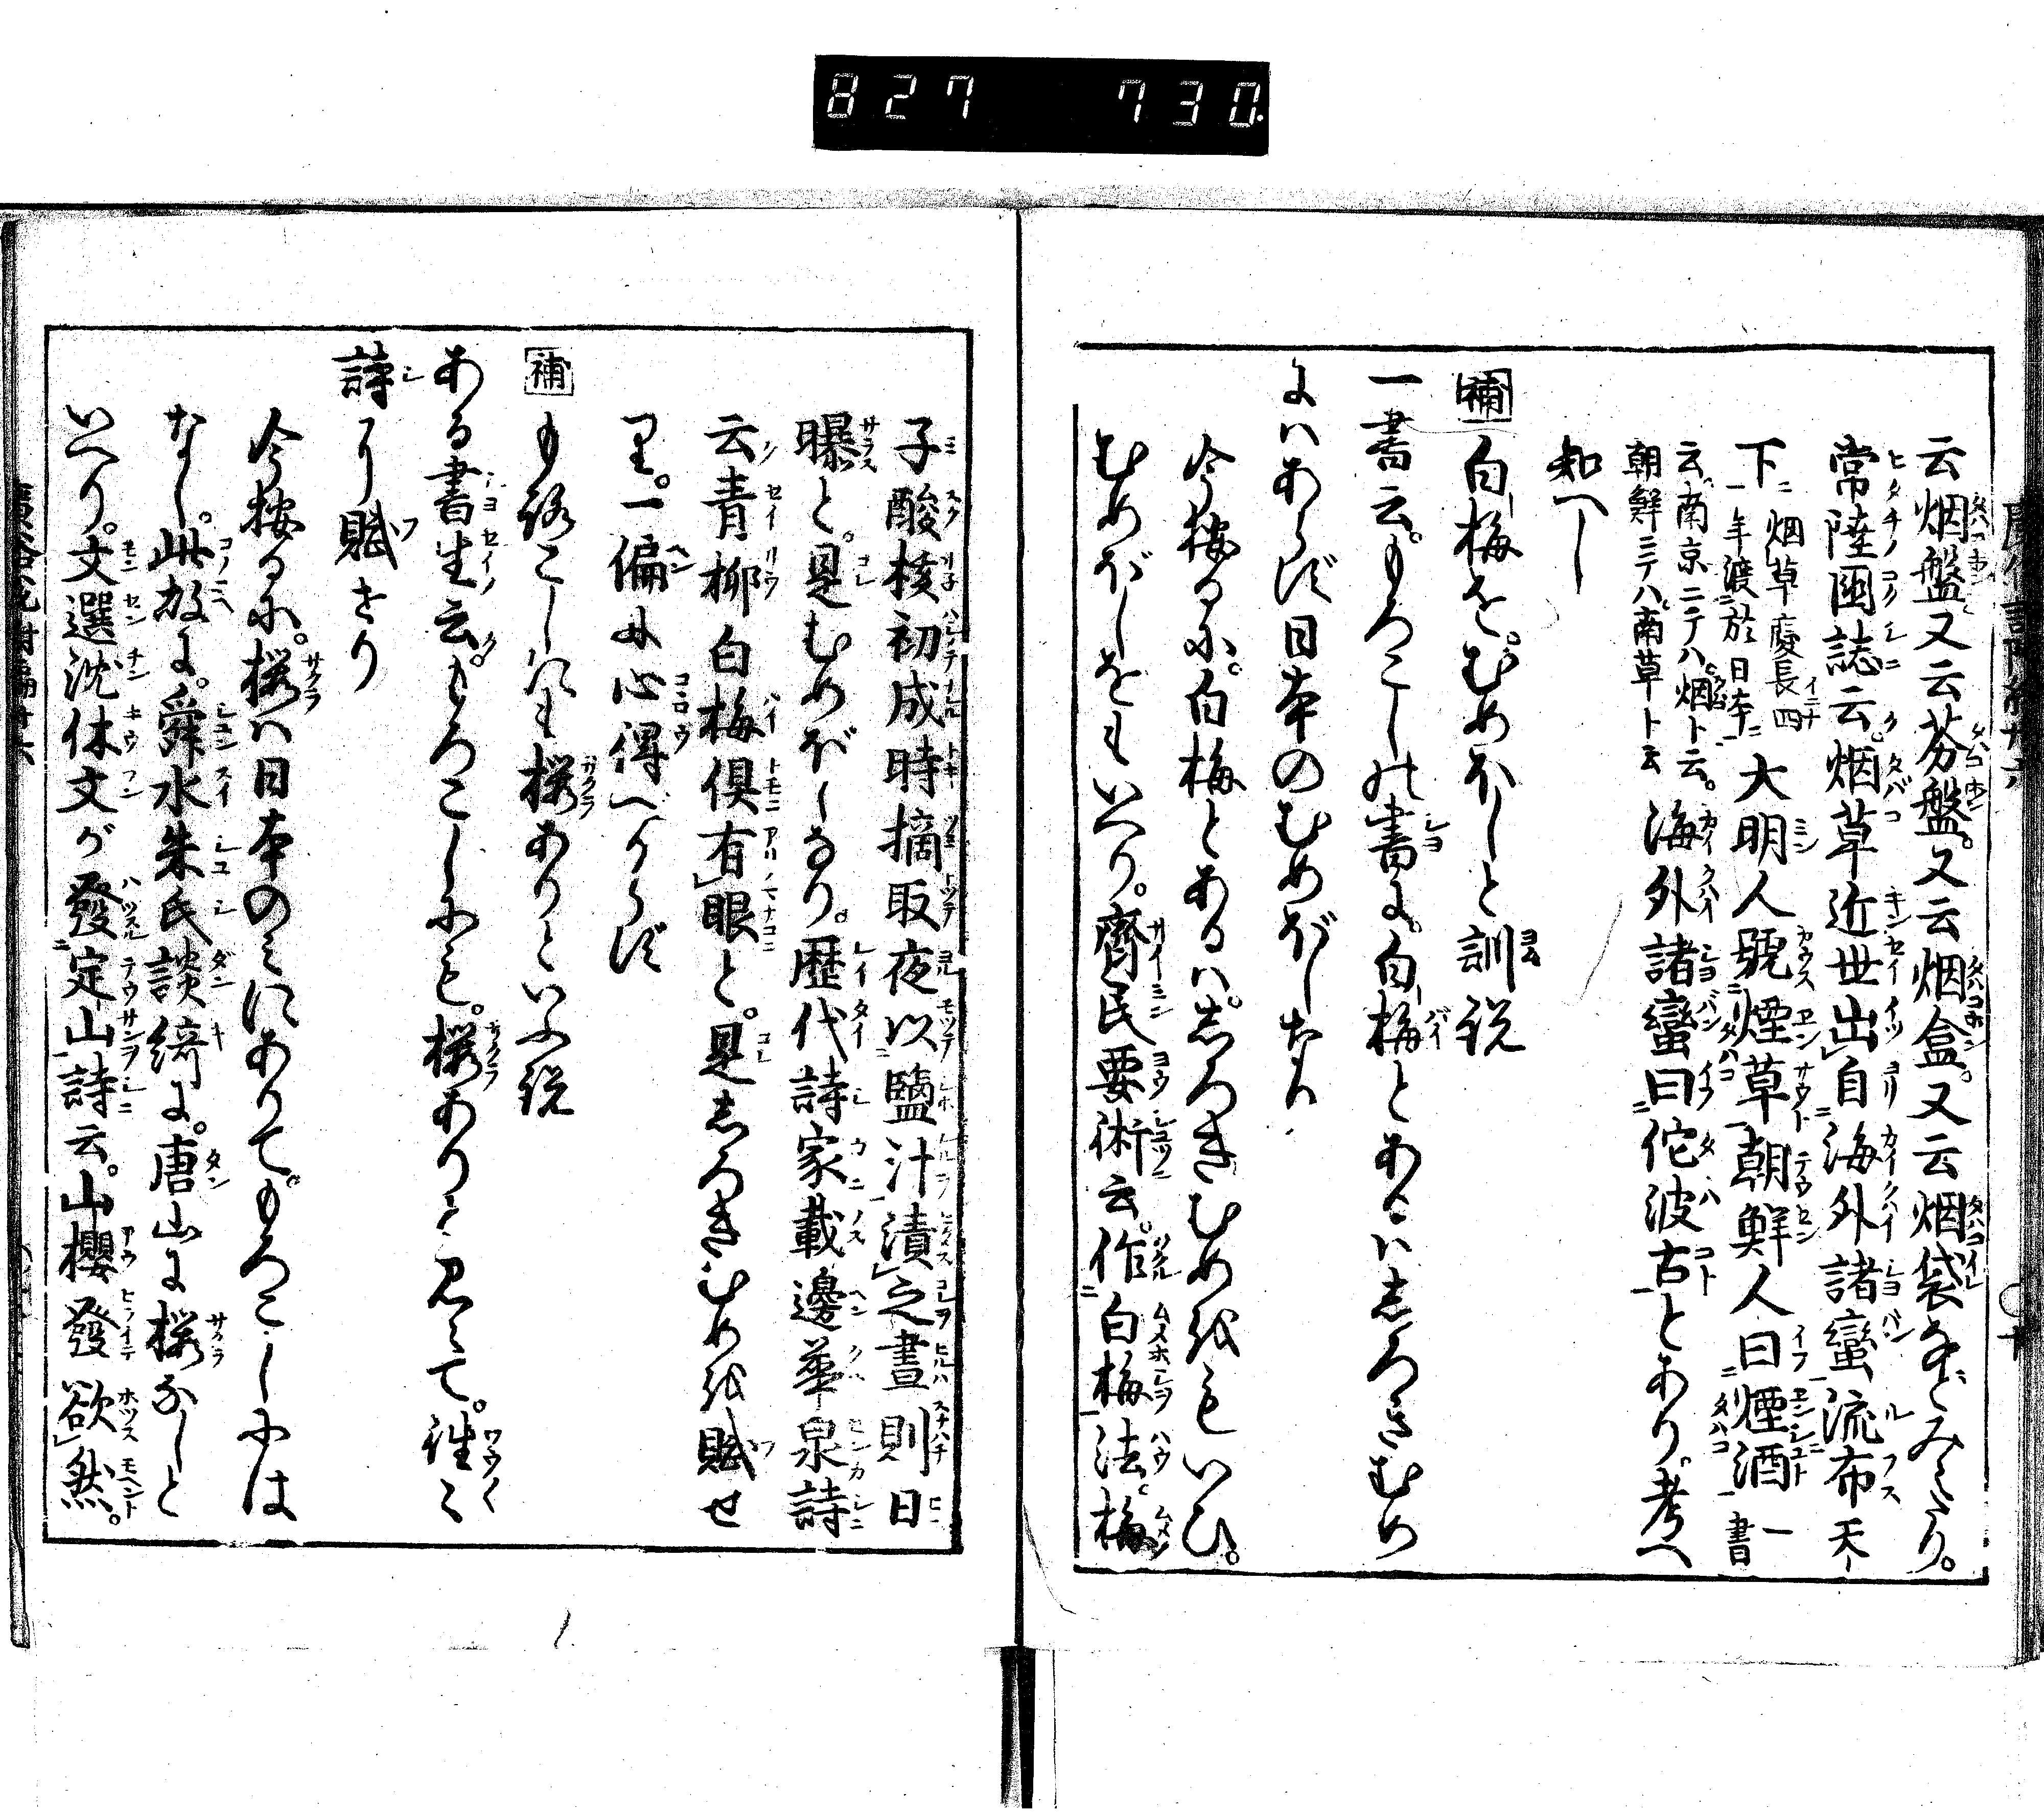 827 730
云烟盤又云莕盤。又云烟盒。又云烟袋などみへたり。
常陸國誌云。烟草近世出自海外諸蠻流布天
下 烟草慶長四年渡於日本 大明人號煙草朝鮮人曰煙酒 一書
云南京ニテハ烟ト云。朝鮮ニテハ南草ト云 海外諸蠻曰佗波古とあり。考へ
知へし
補 白梅を。むめぼしと訓説
一書云。もろこしの書に。白梅とあるはしろきむめ
にはあらず日本のむめぼしなり
今按るに。白梅とあるは。しろきむめをもいひ。
むめぼしをもいへり。齊民要術云。作白梅法。梅
子酸核初成時摘取夜以鹽汁漬之晝則日
曝と。是むめぼしなり。歴代詩家載邊華泉詩
云青柳白梅俱有眼と。是しろきむめを賦せ
り。一偏に心得へからず
補 もろこしにも桜ありといふ説
ある書生云。もろこしにも。桜ありと見へて。往々
詩に賦せり
今按るに。桜は日本のみにありて。もろこしには
なし。此故に。舜水朱氏談綺に。唐山に桜なしと
いへり。文選沈休文が發定山詩云。山櫻發欲然。